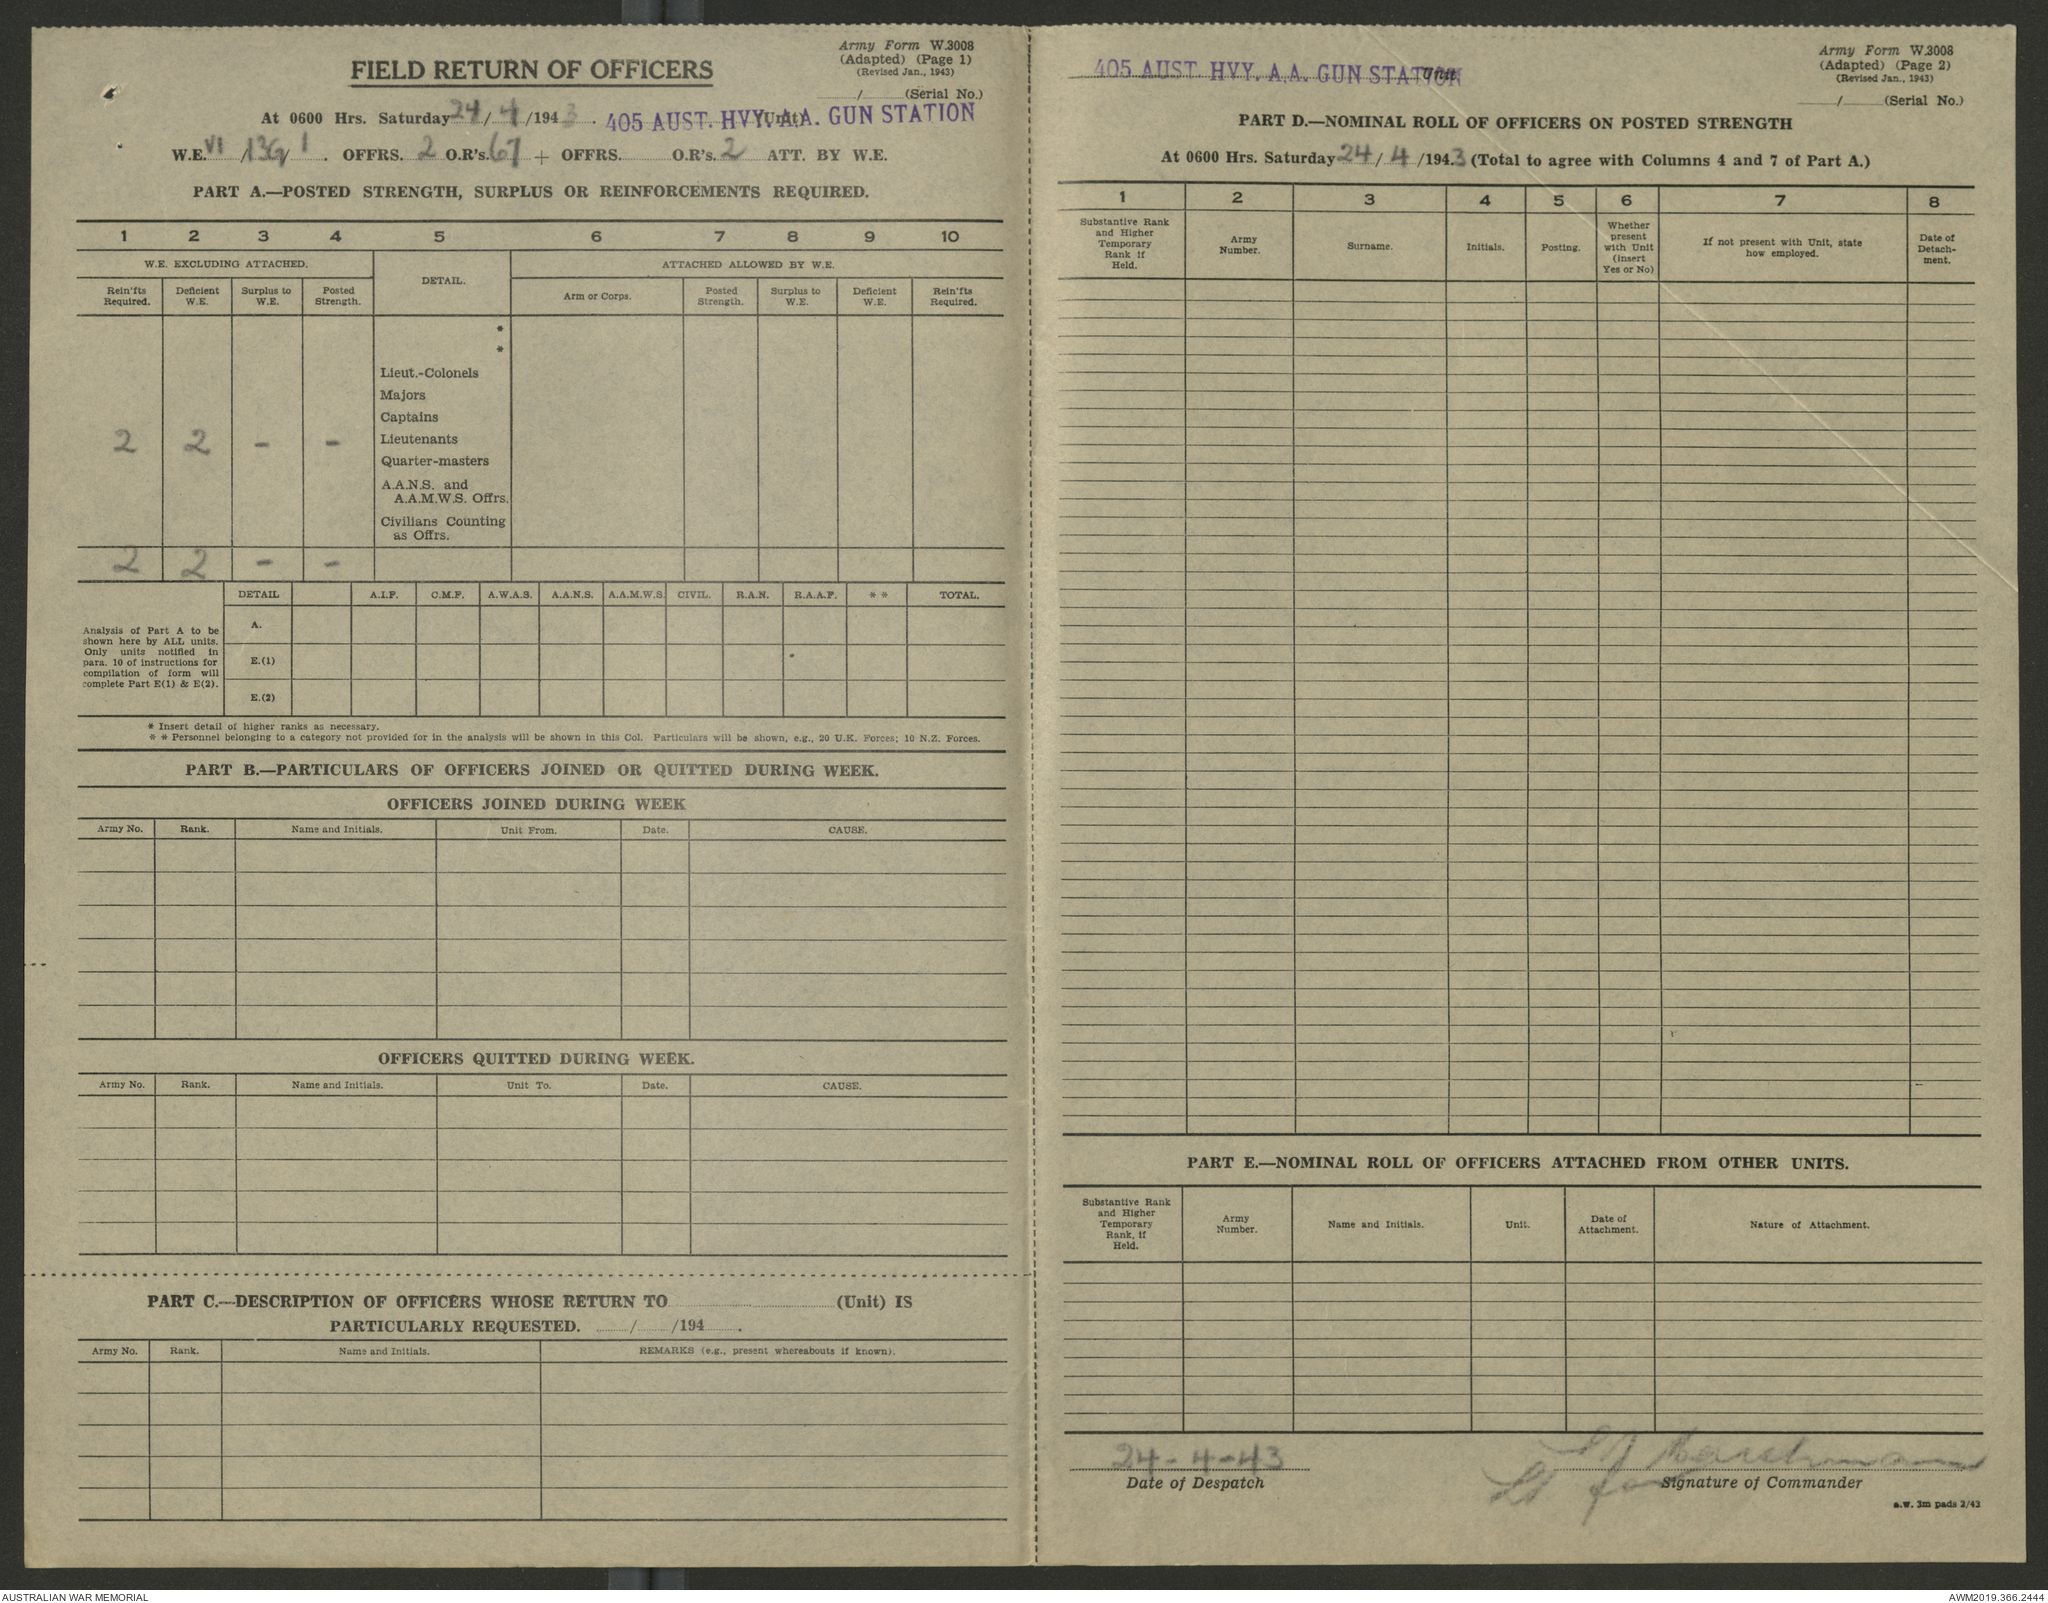 Army Form W.3008
(Adapted) (Page 1)
(Revised Jan., 1943)
FIELD RETURN OF OFFICERS
/ (Serial No.)
At 0600 Hrs. Saturday 24/4/1943. 405 AUST. HVY. A.A. GUN STATION (Unit)
W.E. VI/13G/1. OFFRS. 2 O.R's. 67 + OFFRS. O.R's. 2 ATT. BY W.E.
PART A.—POSTED STRENGTH, SURPLUS OR REINFORCEMENTS REQUIRED.
1 2 3 4 5 6 7 8 9 10
W.E. EXCLUDING ATTACHED. DETAIL. ATTACHED ALLOWED BY W.E.
Rein'fts Required. Deficient W.E. Surplus to W.E. Posted Strength. Arm or Corps. Posted Strength. Surplus to W.E. Deficient W.E. Rein'fts Required.
*
*
Lieut.-Colonels
Majors
Captains
2 2 - - Lieutenants
Quarter-masters
A.A.N.S. and
A.A.M.W.S. Offrs.
Civilians Counting
as Offrs.
2 2 - -
DETAIL A.I.F. C.M.F. A.W.A.S. A.A.N.S. A.A.M.W.S. CIVIL. R.A.N. R.A.A.F. * * TOTAL.
Analysis of Part A to be
shown here by ALL units.
Only units notified in
para. 10 of instructions for
compilation of form will
complete Part E(1) & E(2).
A.
E.(1)
E.(2)
* Insert detail of higher ranks as necessary.
* * Personnel belonging to a category not provided for in the analysis will be shown in this Col. Particulars will be shown, e.g., 20 U.K. Forces; 10 N.Z. Forces.
PART B.—PARTICULARS OF OFFICERS JOINED OR QUITTED DURING WEEK.
OFFICERS JOINED DURING WEEK
Army No. Rank. Name and Initials. Unit From. Date. CAUSE.
OFFICERS QUITTED DURING WEEK.
Army No. Rank. Name and Initials. Unit To. Date. CAUSE.
PART C.—DESCRIPTION OF OFFICERS WHOSE RETURN TO (Unit) IS
PARTICULARLY REQUESTED. / /194 .
Army No. Rank. Name and Initials. REMARKS (e.g., present whereabouts if known).
Army Form W.3008
(Adapted) (Page 2)
(Revised Jan., 1943)
405 AUST. HVY. A.A. GUN STATION Unit
/ (Serial No.)
PART D.—NOMINAL ROLL OF OFFICERS ON POSTED STRENGTH
At 0600 Hrs. Saturday 24/4/1943 (Total to agree with Columns 4 and 7 of Part A.)
1 2 3 4 5 6 7 8
Substantive Rank and Higher Temporary Rank if Held. Army Number. Surname. Initials. Posting. Whether present with Unit (insert Yes or No) If not present with Unit, state how employed. Date of Detach-ment.
PART E.—NOMINAL ROLL OF OFFICERS ATTACHED FROM OTHER UNITS.
Substantive Rank and Higher Temporary Rank, if Held. Army Number. Name and Initials. Unit. Date of Attachment. Nature of Attachment.
24-4-43
Date of Despatch
Lt for
Signature of Commander
a.w. 3m pads 2/43
AUSTRALIAN WAR MEMORIAL
AWM2019.366.2444